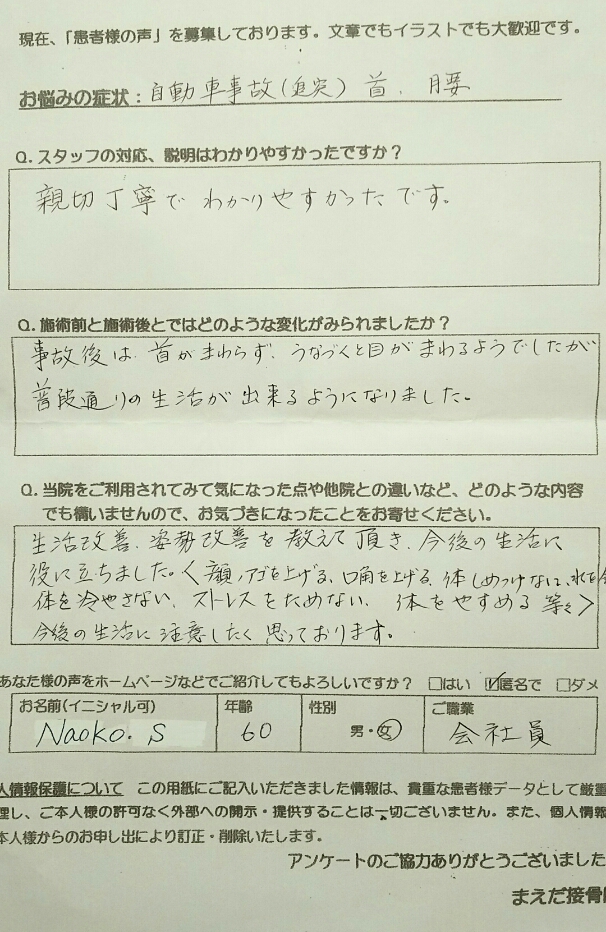 現在、「患者様の声」を募集しております。文章でもイラストでも大歓迎です。
お悩みの症状：自動車事故(追突) 首、腰
Q.スタッフの対応、説明はわかりやすかったですか？
親切丁寧でわかりやすかったです。
Q.施術前と施術後とではどのような変化がみられましたか？
事故後は、首がまわらず、うなづくと目がまわるようでしたが
普段通りの生活が出来るようになりました。
Q.当院をご利用されてみて気になった点や他院との違いなど、どのような内容
でも構いませんので、お気づきになったことをお寄せください。
生活改善、姿勢改善を教えて頂き、今後の生活に
役に立ちました。<顔、アゴを上げる、口角を上げる、体しめつけない、水を
体を冷やさない、ストレスをためない、体をやすめる 等々>
今後の生活に注意したく思っております。
あなた様の声をホームページなどでご紹介してもよろしいですか？ □はい ☑匿名で □ダメ
お名前(イニシャル可) 年齢 性別 ご職業
Naoko. S 60 男・女 会社員
人情報保護について この用紙にご記入いただきました情報は、貴重な患者様データとして厳重
理し、ご本人様の許可なく外部への開示・提供することは一切ございません。また、個人情報
本人様からのお申し出により訂正・削除いたします。
アンケートのご協力ありがとうございました
まえだ接骨